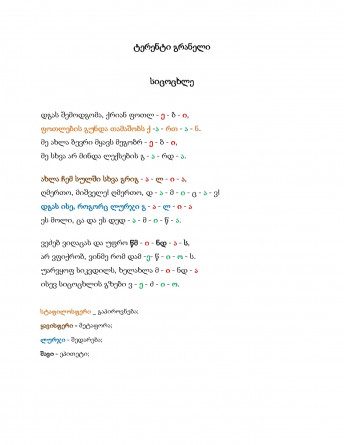 ტერენტი გრანელი
სიცოცხლე
დგას შემოდგომა, ქრიან ფოთლ - ე - ბ - ი,
ფოთლების გუნდა თამაშობს ქ -ა - რთ - ა - ნ.
მე ახლა ბევრი მყავს მეგობრ - ე - ბ - ი,
მე სხვა არ მინდა ლექსების გ - ა - რდ - ა.
ახლა ჩემ სულში სხვა გრიგ - ა - ლ - ი - ა,
ღმერთო, მიშველე! ღმერთო, დ - ა - მ - ი - ც - ა - ვ!
დგას ისე, როგორც ლურჯი გ - ა - ლ - ი - ა
ეს მოლი, ცა და ეს დედ - ა - მ - ი - წ - ა.
ვეძებ ვიღაცას და უფრო წმ - ი - ნდ - ა - ს,
არ ვფიქრობ, ვინმე რომ დამ -ე- წ - ი - ო - ს.
უარვყოფ სიკვდილს, ხელახლა მ - ი - ნდ - ა
ისევ სიცოცხლის გზები ვ - ე - ძ - ი - ო.
სტაფილოსფერი _ გაპიროვნება;
ყავისფერი - მეტაფორა;
ლურჯი - შედარება;
შავი - ეპითეტი;